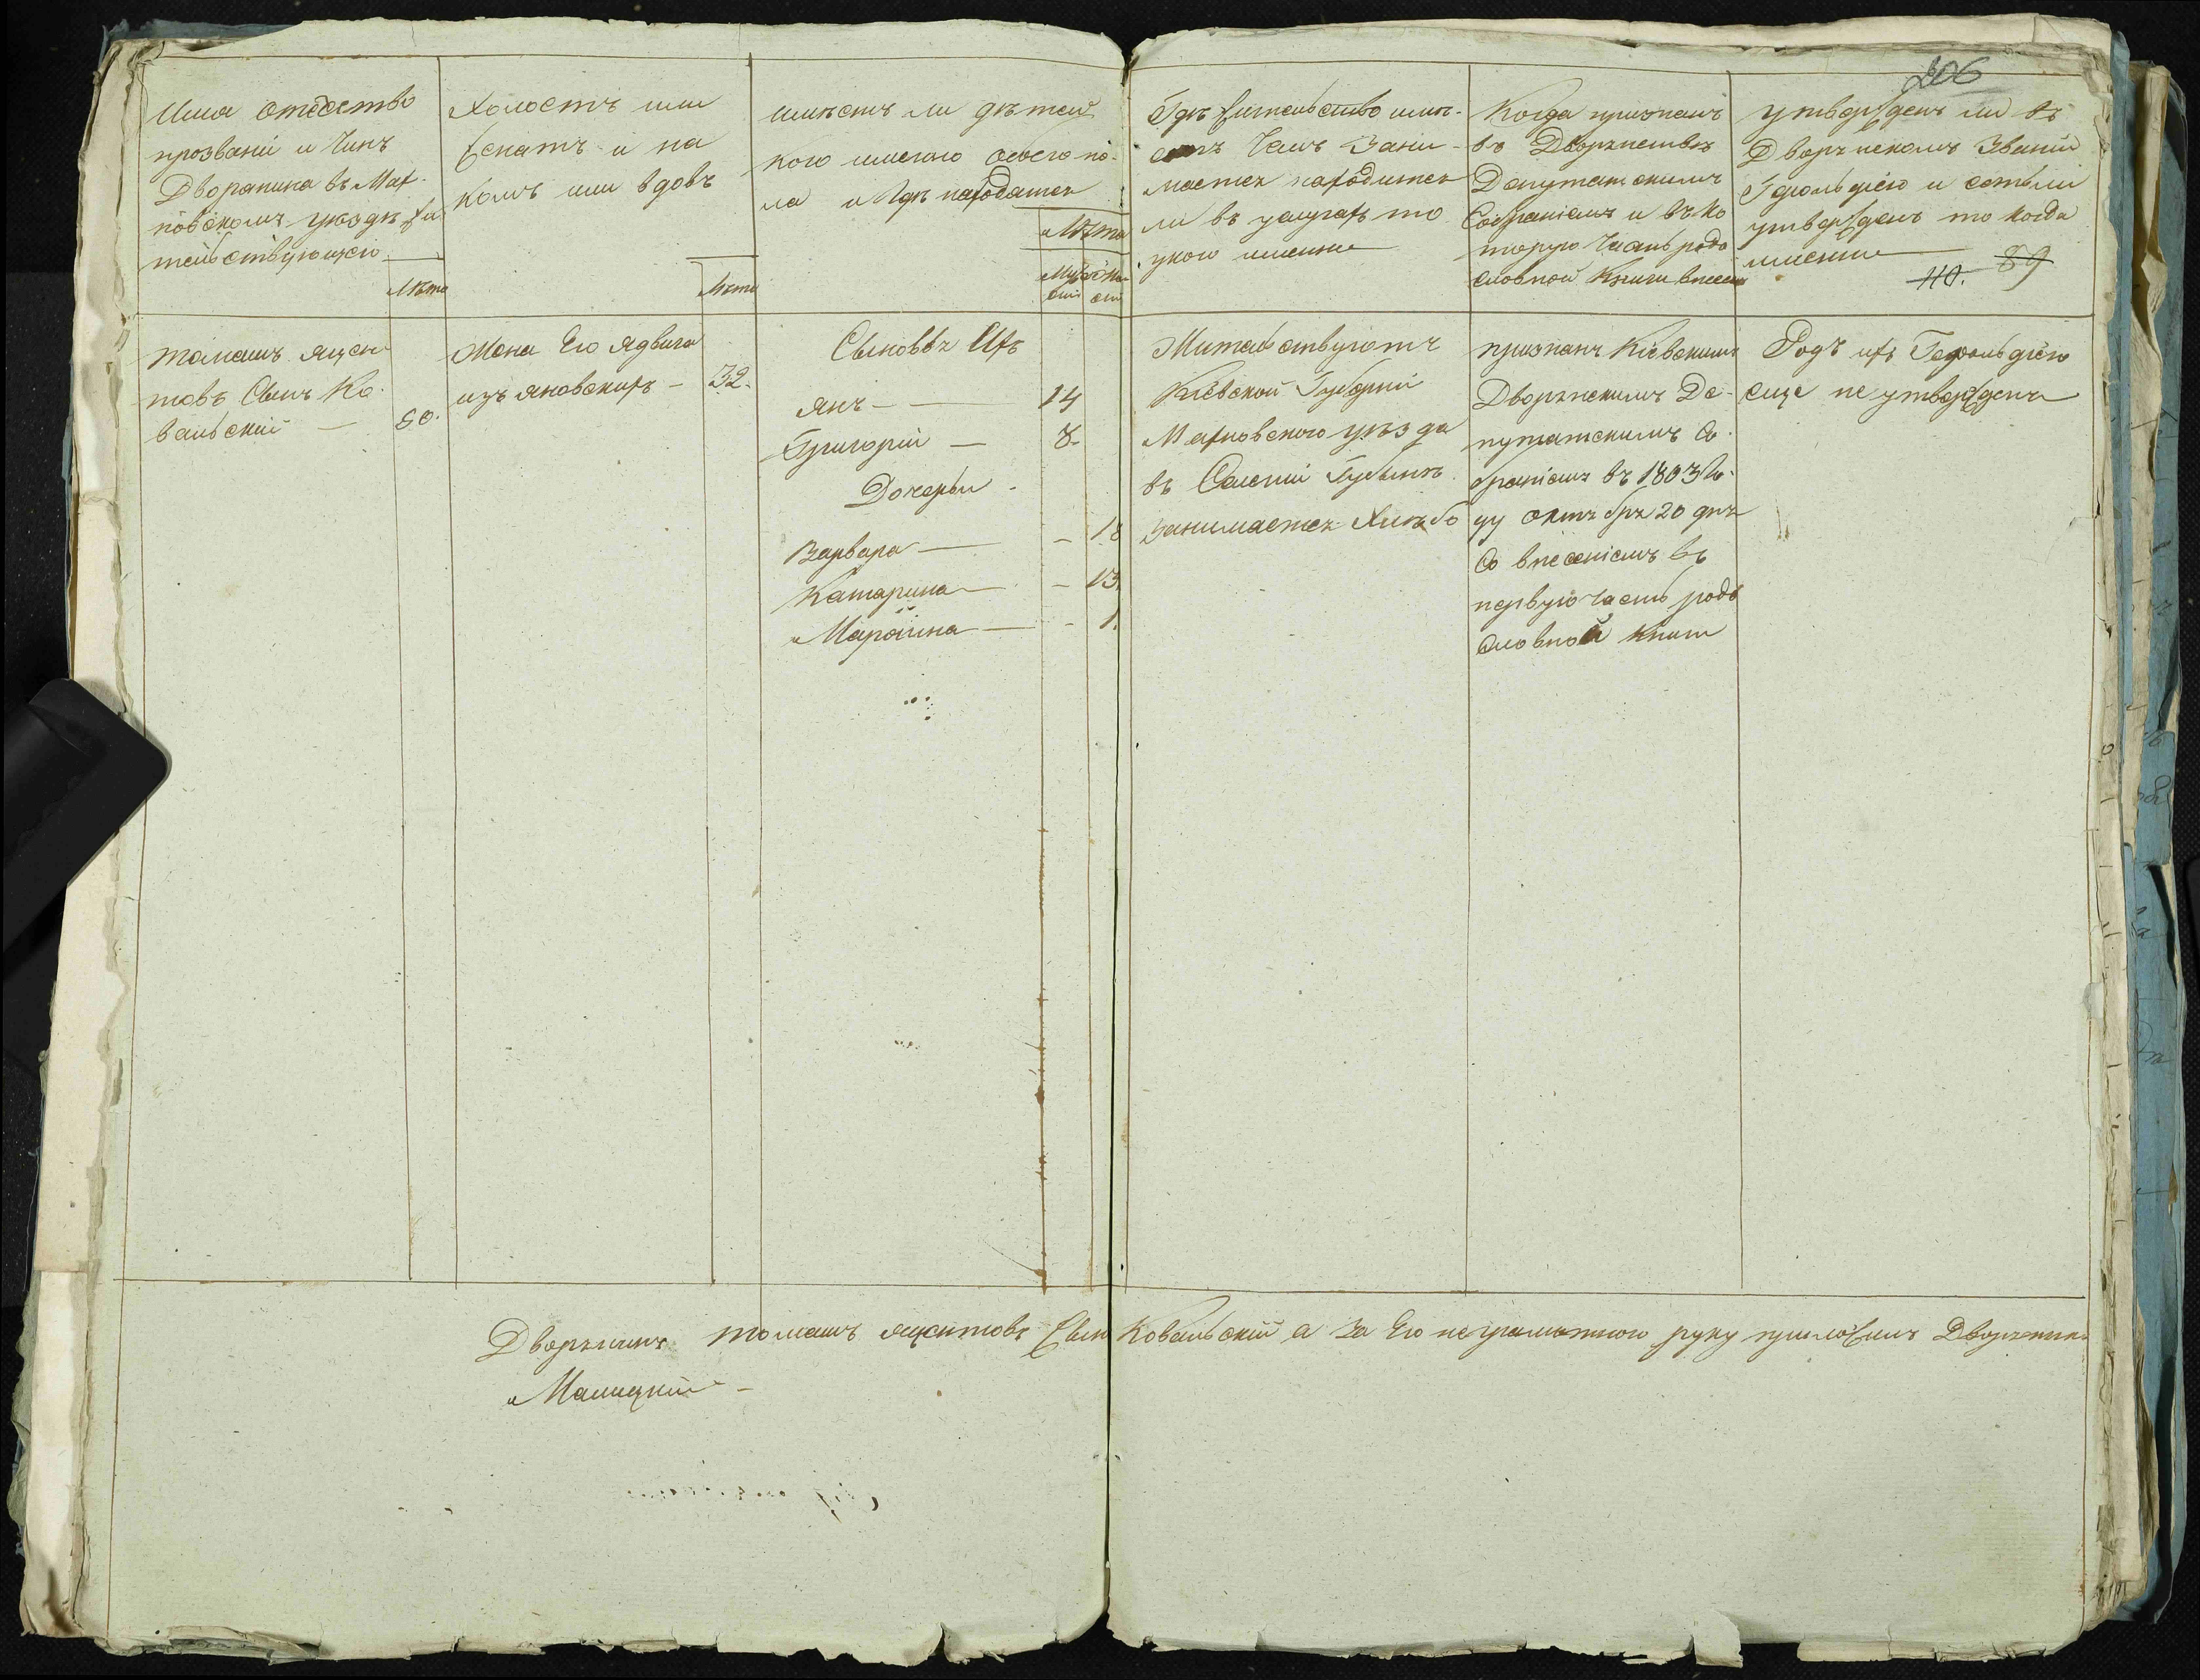 206
Имя отечество
прозвание и Чинъ
Дворянина въ Мах-
новскомъ уезде жи
тельствующего
Лета
Холостъ или
женатъ и на
комъ или вдовъ
Лета
имеетъ ли детей
кого имегно одного по-
ла и где находятся
Лета
Муже Жен
скій скій
Где жительство име-
етъ Чемъ Зани-
мается находится
ли въ услугахъ то
у кого именно
Когда признанъ
въ Дворянстве
Депутатскимъ
Собраніемъ и въ Ко
торую Часть родо
словной Книги внесенъ
утвержденъ ли въ
Дворянскомъ Званіи
Герольдіею и естьли
утвержденъ то когда
именно
110. 89
Томашъ яцен
товъ Сынъ Ко-
вальскій — 60.
Жена Его Ядвига
изъ Яновскихъ — 32.
Сыновья Ихъ
Янъ — 14
Григорій — 8
Дочери
Варвара — 18
Катарина — 13.
Мароина — 1.
Жительствуютъ
Кіевской Губерніи
Махновского уезда
въ Селеніи Губинъ
занимается Хлебо
признанъ Кіевскимъ
Дворянскимъ Де-
путатскимъ Со-
браніемъ въ 1803 Го-
ду октября 20 дня
Со внесеніемъ въ
первую часть родо
словной Книги
Родъ ихъ Герольдіею
еще не утвержденъ
Дворянинъ Томашъ яцентовъ Сынъ Ковальскій а За Его неграмотного руку приложилъ Дворянинъ
Малицкій